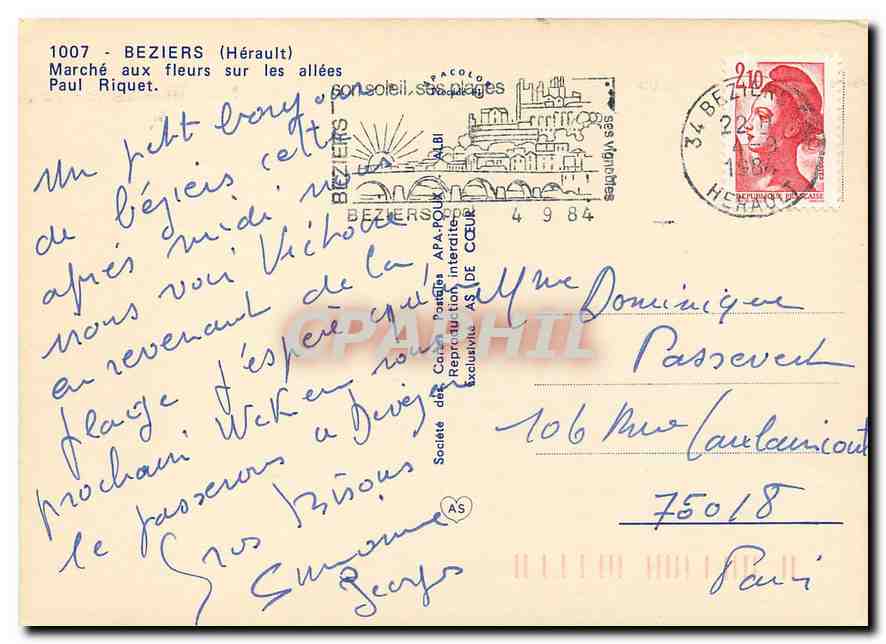 1007 - BEZIERS (Hérault)
Marché aux fleurs sur les allées
Paul Riquet.
Un petit bonjour
de béziers cette
après midi nous
nous voir Victoire
en revenant de la
plage j'espère qu'au
prochain Weken nous
le passerons a
Gros Bisous
Simone
Georges
APACOLOR
son soleil, ses plages
BEZIERS
ses vignobles
BEZIERS ppal
4 9 84
34 BEZIERS
22 H
4 - 9
1984
HERAULT
2,10
REPUBLIQUE FRANÇAISE
Société des Cartes Postales APA-POUX - ALBI
Reproduction interdite
Exclusivité AS DE CŒUR
AS
CPAPHIL
Mme Dominique
Passevert
106 Rue Caulaincourt
75018
Paris